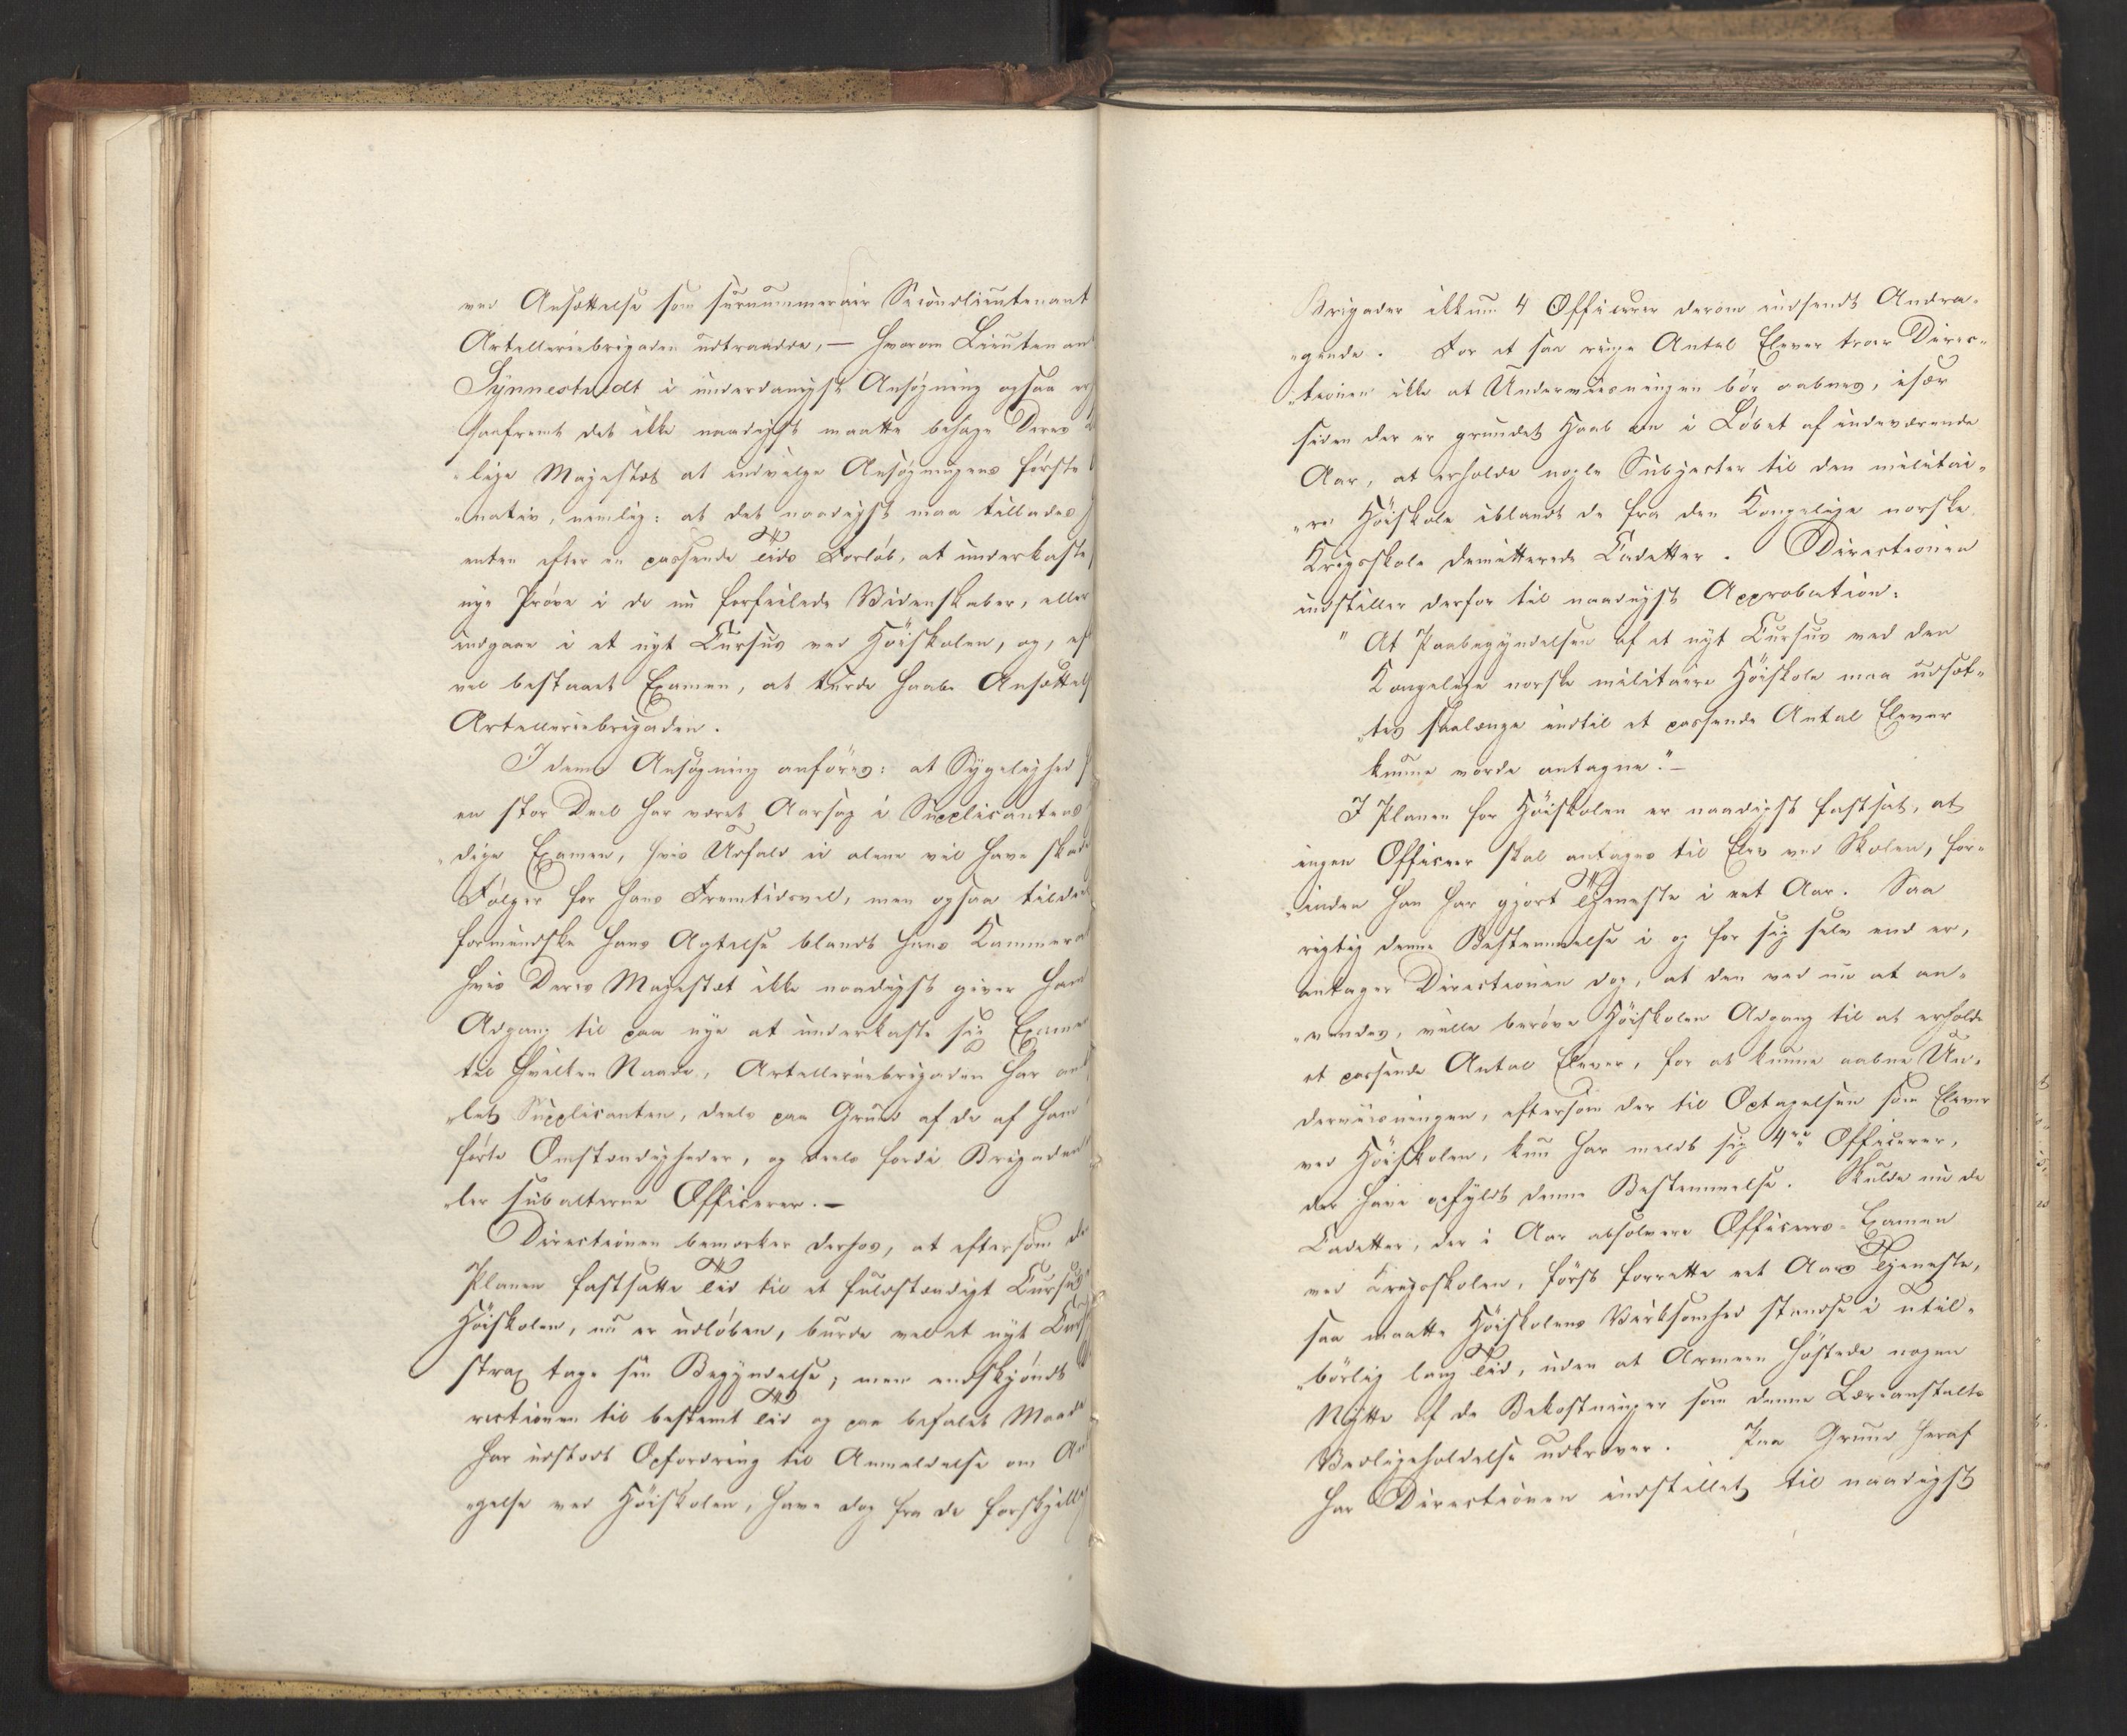 ved Ansættelse som surnummerair Secondlieutenant
Artilleriebrigaden udtraadde, — hvorom Lieutenan
Synnestvedt i underdanigst Ansøgning ogsaa
saafremt det ikke naadigst maatte behage Deres
„lige Majestæt at indvilge Ansøgningens første
„nativ, nemlig: at det naadigst maa tillades
enten efter en passende Tids Forløb, at underkaste
nye Prøve i de nu forfeilede Videnskaber, eller
indgaae i et nyt Cursus ved Høiskolen, og, ef
vel bestaaet Examen, at turde haabe Ansættels
Artilleriebrigaden.
I denne Ansøgning anføres: at Sygelighed
en stor Deel har været Aarsag i Supplicantens
„dige Examen, hvis Udfald ei alene vil have skade
Følger for hans Fremtidsvel, men ogsaa tildeels
formindske hans Agtelse blandt hans Kammera
hvis Deres Majestæt ikke naadigst giver ham
Adgang til paa nye at underkaste sig Examen
til hvilken Naade, Artilleriebrigaden har anb
„let Supplicanten, deels paa Grund af de af ham
førte Omstændigheder, og deels fordi Brigaden
„ler subalterne Officerer. —
Directionen bemærker derhos, at eftersom de
Planen fastsatte Tid til et fuldstændigt Cursus
Høiskolen, nu er udløben, burde vel et nyt Curs
strax tage sin Begyndelse; men endskjøndt
rectionen til bestemt Tid og paa befalet Maade
har udstædt Opfordring til Anmeldelse om An
„gelse ved Høiskolen, have dog fra de forskjell
Brigader ikkun 4 Officerer derom indsendt Andra„
„gende. For et saa ringe Antal Elever troer Direc„
„tionen ikke at Underviisningen bør aabnes, især
siden der er grundet Haab om i Løbet af indeværende
Aar, at erholde nogle Subjecter til den militai„
„re Høiskole iblandt de fra den Kongelige norske
Krigsskole demitterede Cadetter. Directionen
indstiller derfor til naadigst Approbation:
" At Paabegyndelsen af et nyt Cursus ved den
Kongelige norske militaire Høiskole maa udsæt„
„tes saalænge indtil et passende Antal Elever
kunne vorde antagne." —
I Planen for Høiskolen er naadigst fastsat, at
ingen Officeer skal antages til Elev ved Skolen, for„
„inden han har gjort Tjeneste i eet Aar. Saa
rigtig denne Bestemmelse i og for sig selv end er,
antager Directionen dog, at den ved nu at an„
„vendes, vilde berøve Høiskolen Adgang til at erholde
et passende Antal Elever, for at kunne aabne Un„
derviisningen, eftersom der til Optagelsen som Elever
ved Høiskolen, kun har meldt sig 4re Officerer,
der have opfyldt denne Bestemmelse. Skulde nu de
Cadetter, der i Aar absolvere Officeers-Examen
ved Krigsskolen, først forrette eet Aars Tjeneste,
saa maatte Høiskolens Virksomhed standse i util„
„børlig lang Tid, uden at Armeen høstede nogen
Nytte af de Bekostninger som denne Læreanstalts
Vedligeholdelse udkræver. Paa Grund heraf
har Directionen indstillet til naadigst